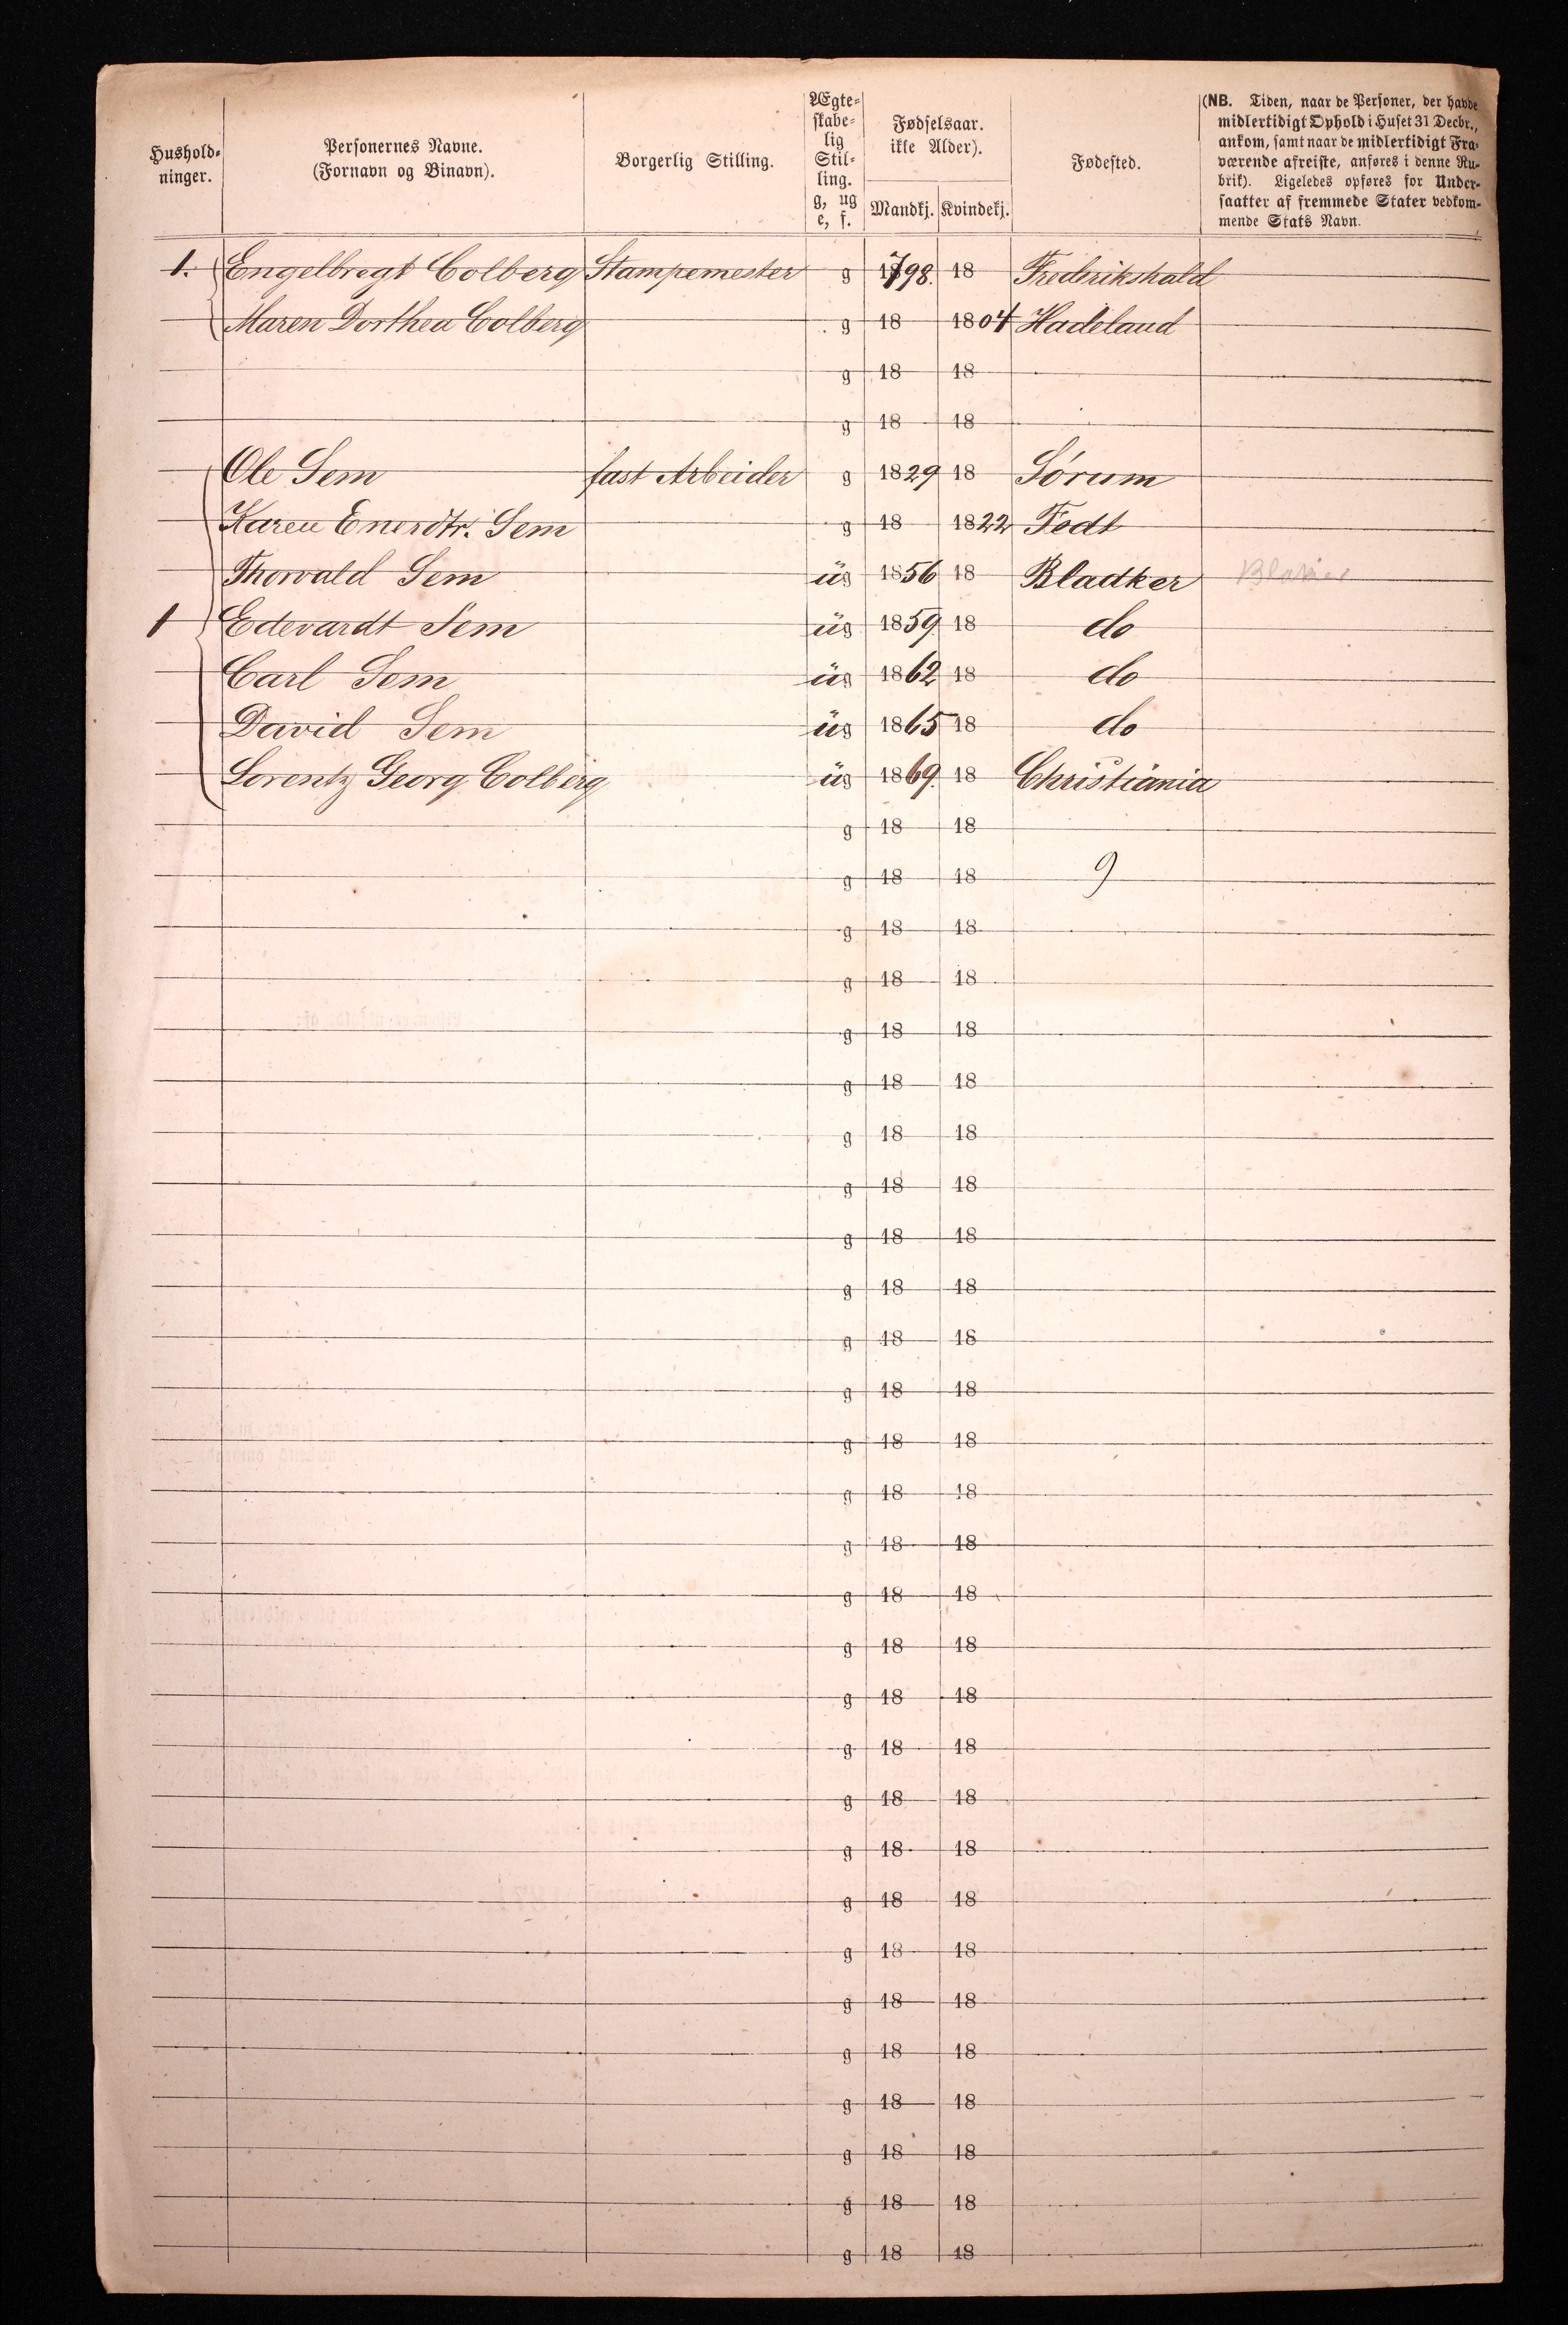 Hushold-
ninger.
Personernes Navne.
(Fornavn og Binavn).
Borgerlig Stilling.
Ægte-
skabe-
lig
Stil-
ling.
g, ug
e, f.
Fødselsaar.
ikke Alder).
Mandkj. Kvindekj.
Fødested.
(NB. Tiden, naar de Personer, der havde
midlertidigt Ophold i Huset 31 Decbr.,
ankom, samt naar de midlertidigt Fra-
værende afreiste, anføres i denne Ru-
brik). Ligeledes opføres for Under-
saatter af fremmede Stater vedkom-
mende Stats Navn.
1. Engelbregt Colberg Stampemester g 1798. 18 Frederikshald
Maren Dorthea Colberg g 18 1804 Hadeland
g 18 18
g 18 18
Ole Sem fast Arbeider g 1829 18 Sórum
Karen Enerdtr. Sem g 18 1822 Fedt
Thorvald Sem üg 1856 18 Bladker Blakier
1 Edevardt Sem üg 1859. 18 do
Carl Sem üg 1862 18 do
David Sem üg 1865 18 do
Lorentz Georg Colberg üg 1869. 18 Christiania
g 18 18
g 18 18 9
g 18 18
g 18 18
g 18 18
g 18 18
g 18 18
g 18 18
g 18 18
g 18 18
g 18 18
g 18 18
g 18 18
g 18 18
g 18 18
g 18 18
g 18 18
g 18 18
g 18 18
g 18 18
g 18 18
g 18 18
g 18 18
g 18 18
g 18 18
g 18 18
g 18 18
g 18 18
g 18 18